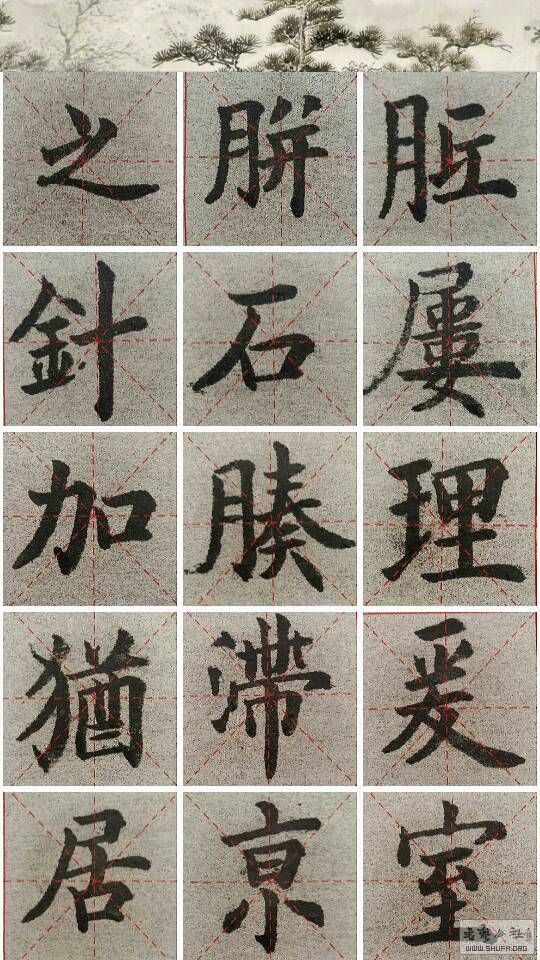 之胼胝
針石屢
加腠理
猶滯爰
居京室
WWW.SHUFA.ORG